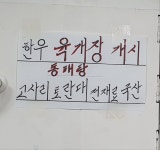 한우 육개장 개시
동태탕
고사리 토란대 전재료국산